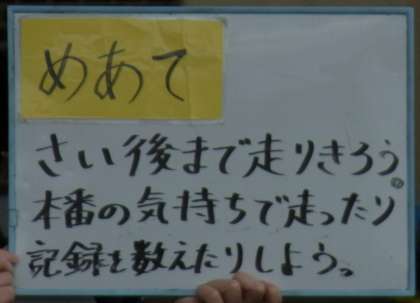 めあて
さい後まで走りきろう。
本番の気持ちで走ったり
記録を数えたりしよう。